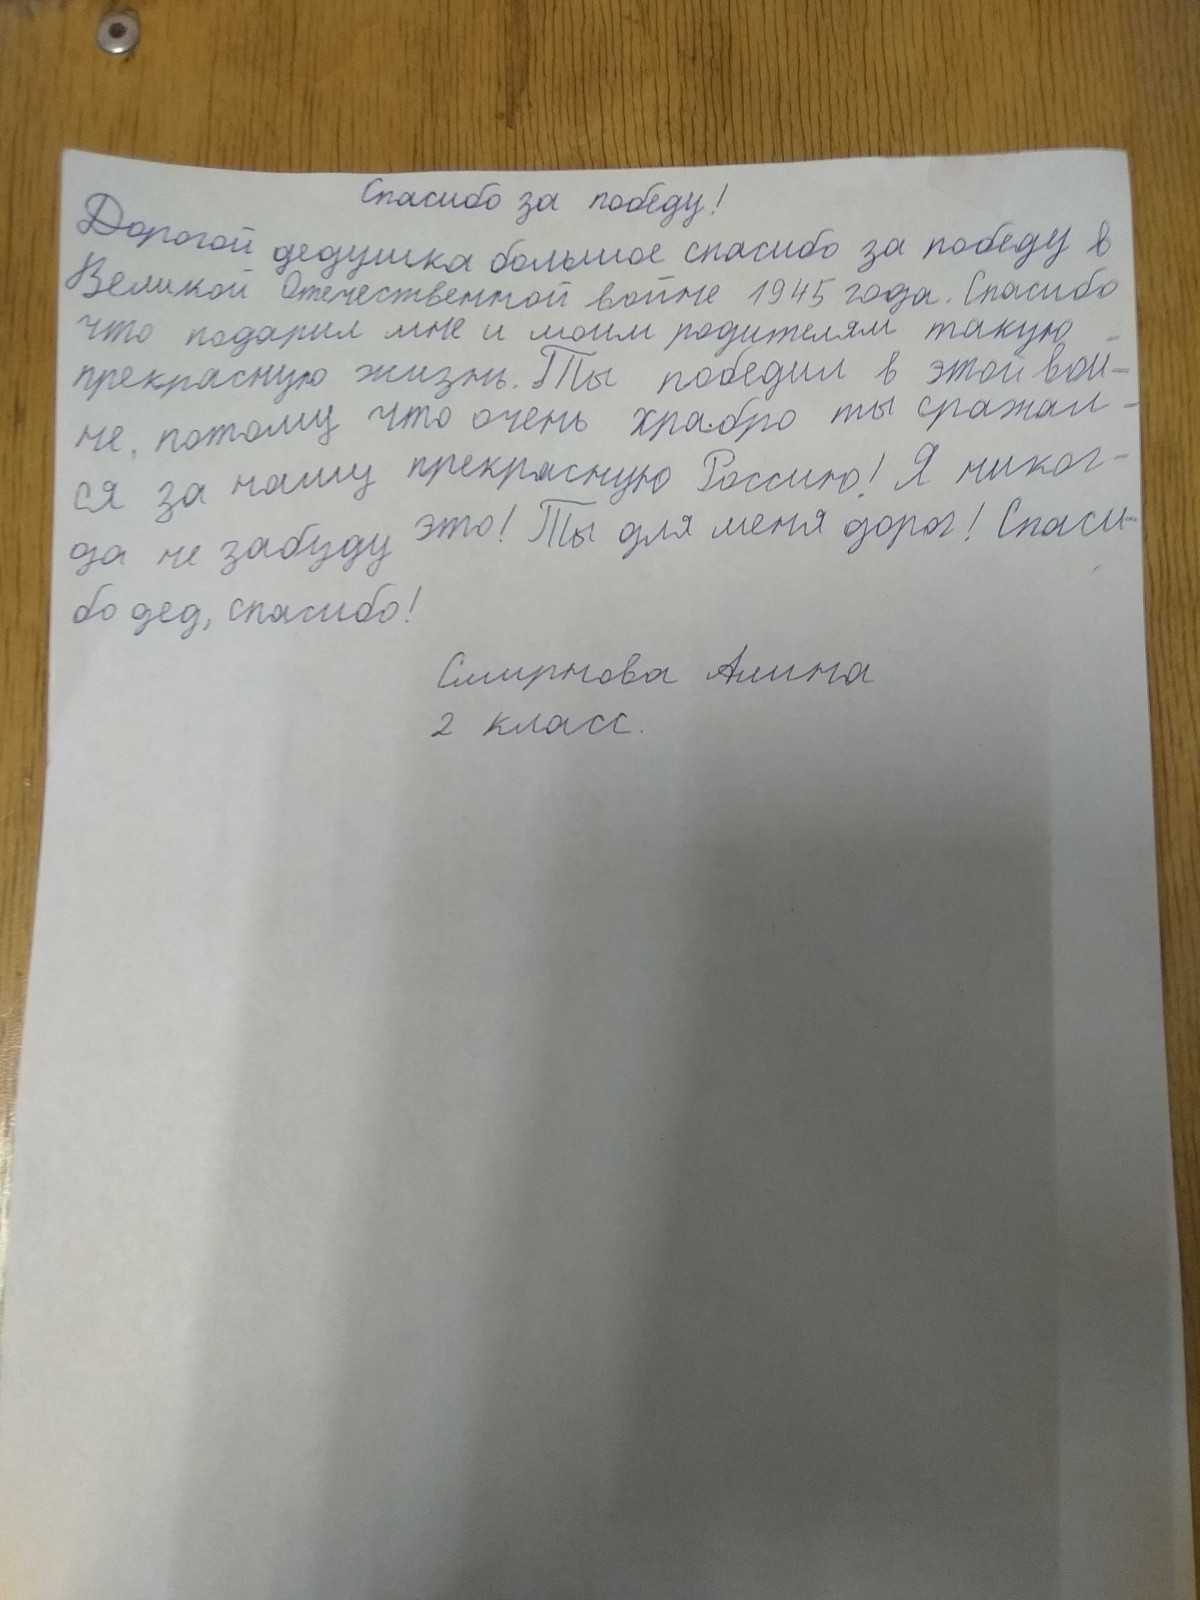 Спасибо за победу!
Дорогой дедушка большое спасибо за победу в
Великой Отечественной войне 1945 года. Спасибо
что подарил мне и моим родителям такую
прекрасную жизнь. Ты победил в этой вой-
не, потому что очень храбро ты сражал-
ся за нашу прекрасную Россию! Я никог-
да не забуду это! Ты для меня дорог! Спаси-
бо дед, спасибо!
Смирнова Алина
2 класс.